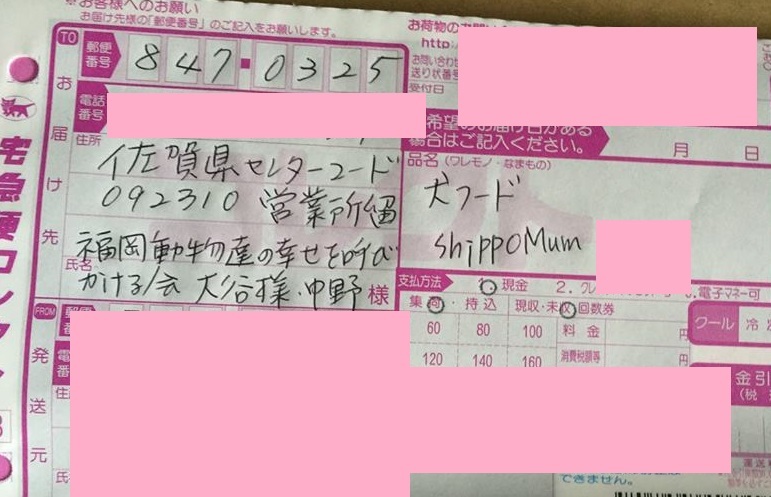 ※お客様へのお願い
お届け先様の「郵便番号」のご記入をお願いします。
TO
郵便番号
847-0325
電話番号
お届け先
住所
佐賀県センターコード
092310 営業所留
福岡動物達の幸せを呼び
氏名
かける会 大谷様・中野 様
宅急便コレクト
FROM
発送元
お荷物のお問い
http:
お問い合わせ
送り状番号
受付日
希望のお届け日がある
場合はご記入ください。
月 日
品名(ワレモノ・なまもの)
犬フード
shippoMum
支払方法
1. 現金 2. クレ
電子マネー可
集荷・持込 現収・未収 回数券
60 80 100 料金 円
120 140 160 消費税額等 円
クール 冷
金引
(税
できません。